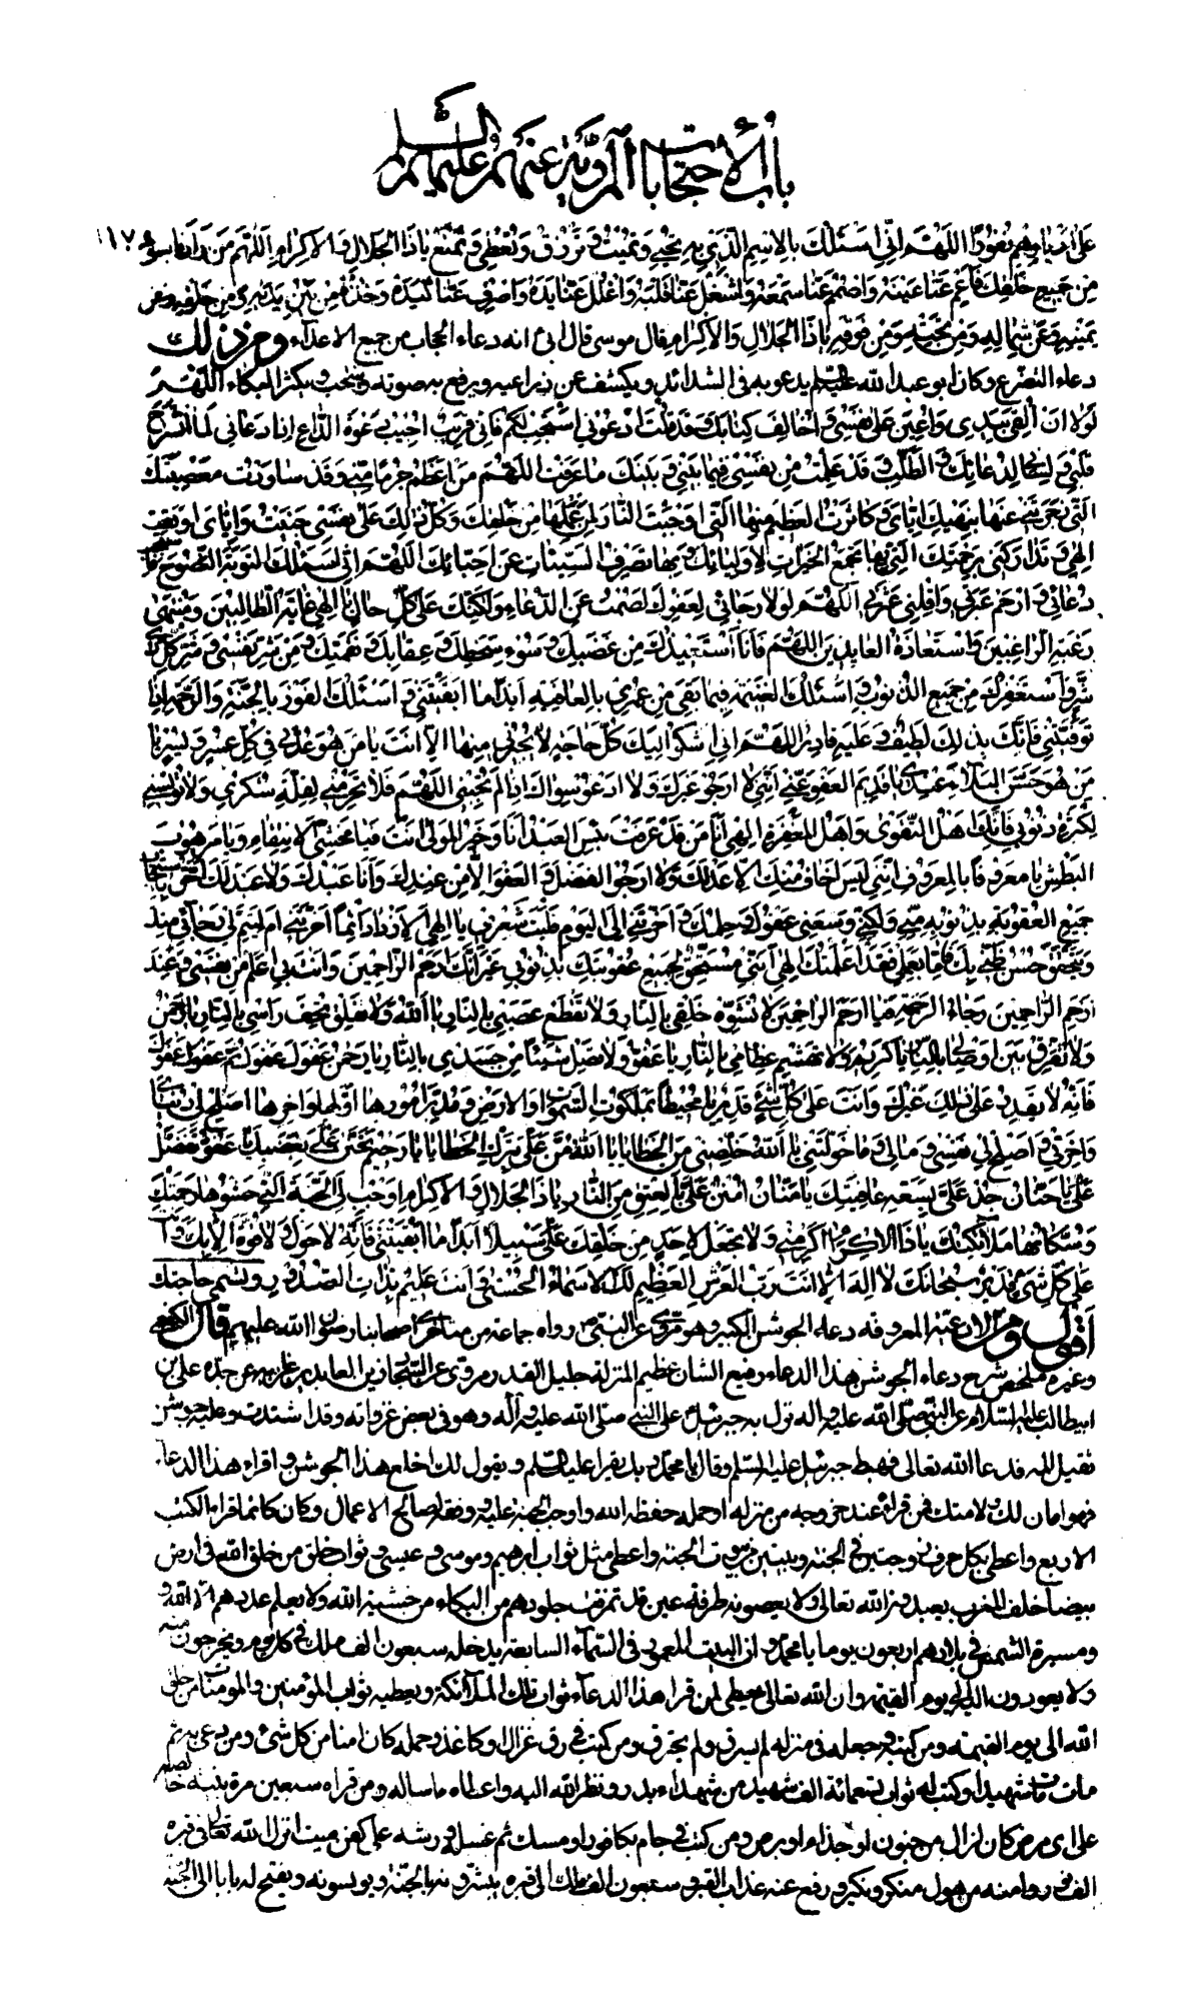 باب الاحتجابات المروية عنهم عليهم السلم
١١٧
على ادبارهم نفورا اللهم انى اسئلك بالاسم الذى به تحيى وتميت وترزق وتعطى وتمنع يا ذا الجلال والاكرام اللهم من ارادنا بسوء
من جميع خلقك فاعم عنا عينه واصمم عنا سمعه واشغل عنا قلبه واغلل عنا يده واصرف عنا كيده وخذه من بين يديه ومن خلفه وعن
يمينه وعن شماله ومن تحته ومن فوقه يا ذا الجلال والاكرام قال موسى قال ابى انه دعاء الحجاب من جميع الاعداء ومن ذلك
دعاء التضرع وكان ابو عبد الله عليه السلم يدعو به فى الشدائد ويكشف عن ذراعيه ويرفع به صوته وينتحب ويكثر البكاء اللهم
لولا ان القى بيدى واعين على نفسى واخالف كتابك وقد قلت ادعونى استجب لكم فانى قريب اجيب دعوة الداع اذا دعانى لما انشرح
قلبى ولسانى لدعائك والطلب وقد علمت من نفسى فيما بينى وبينك ما عرفت اللهم من اعظم جرما منى وقد ساورت معصيتك
التى زجرتنى عنها بنهيك اياى وكاثرت العظيم منها التى اوجبت النار لمن عملها من خلقك وكل ذلك على نفسى جنيت واياى اوبقت
الهى فتداركنى برحمتك التى بها تجمع الخيرات لاوليائك وبها تصرف السيئات عن احبائك اللهم انى اسئلك التوبة النصوح فاستجب
دعائى وارحم عبرتى واقلنى عثرتى اللهم لولا رجائى لعفوك لصمت عن الدعاء ولكنك على كل حال يا الهى غاية الطالبين ومنتهى
رغبة الراغبين واستعاذة العائذين اللهم فانا استعيذك من غضبك وسوء سخطك وعقابك ونقمتك ومن شر نفسى وشر كل ذى
شر واستغفرك من جميع الذنوب واسئلك الغنيمة فيما بقى من عمرى بالعافية ابدا ما ابقيتنى واسئلك الفوز بالجنة والرحمة اذا
توفيتنى فانك بذلك لطيف وعليه قادر اللهم انى اشكو اليك كل حاجة لا يجيرنى منها الا انت يا من هو عدتى فى كل عسر ويسر يا
من هو حسن البلاء عندى يا قديم العفو عنى اننى لا ارجو غيرك ولا ادعو سواك اذا لم تجبنى اللهم فلا تحرمنى لقلة شكرى ولا تؤيسنى
لكثرة ذنوبى فانك اهل التقوى واهل المغفرة الهى انا من قد عرفت بئس العبد انا وخير المولى انت فيا مخشى الانتقام ويا مرهوب
البطش يا معروفا بالمعروف اننى ليس اخاف منك الا عدلك ولا ارجو الفضل والعفو الا من عندك وانا عبدك ولا عبد لك احق باستيجاب
جميع العقوبة بذنوبه منى ولكنى وسعنى عفوك وحلمك واخرتنى الى اليوم فليت شعرى يا الهى الازداد اثما اخرتنى ام ليتم لى رجائى منك
ويتحقق حسن ظنى بك فاما بعملى فقد اعلمتك الهى اننى مستحق لجميع عقوبتك بذنوبى غير انك ارحم الراحمين وانت بى اعلم من نفسى وعند
ارحم الراحمين رجاء الرحمة فيا ارحم الراحمين لا تشوه خلقى بالنار ولا تقطع عصبى بالنار يا الله ولا تفلق قحف راسى بالنار يا رحمن
ولا تفرق بين اوصالى بالنار يا كريم ولا تهشم عظامى بالنار يا عفو ولا تصل شيئا من جسدى بالنار يا رحمن عفوك عفوك ثم عفوك عفوك
فانه لا يقدر على ذلك غيرك وانت على كل شئ قدير يا محيطا بملكوت السموات والارض ومدبر امورها اولها واخرها اصلح لى دنياى
واخرتى واصلح لى نفسى ومالى وما خولتنى يا الله خلصنى من الخطايا يا الله من على بترك الخطايا يا رحيم تحنن على بفضلك يا عفو تفضل
على يا حنان جد على بسعة عافيتك يا منان امنن على بالعتق من النار يا ذا الجلال والاكرام اوجب لى الجنة التى حشوها رحمتك
وسكانها ملائكتك يا ذا الاكرام اكرمنى ولا تجعل لاحد من خلقك على سبيلا ابدا ما ابقيتنى فانه لا حول ولا قوة الا بك وانت
على كل شئ قدير سبحانك لا اله الا انت رب العرش العظيم لك الاسماء الحسنى وانت عليم بذات الصدور وتسمى حاجتك
اقول ومن الادعية المعروفة دعاء الجوشن الكبير وهو مروى عن النبى ص رواه جماعة من متاخرى اصحابنا رضوان الله عليهم قال الكفعمى
وغيره ملخص شرح دعاء الجوشن هذا الدعاء رفيع الشان عظيم المنزلة جليل القدر مروى عن السجاد زين العابدين عن ابيه عن جده على بن
ابيطالب عليهم السلام عن النبى صلى الله عليه واله نزل به جبرئيل على النبى صلى الله عليه وآله وهو فى بعض غزواته وقد اشتدت وعليه جوشن
ثقيل المه فدعا الله تعالى فهبط جبرئيل عليه السلم وقال يا محمد ربك يقرا عليك السلم ويقول لك اخلع هذا الجوشن واقراء هذا الدعاء
فهو امان لك ولامتك فمن قراه عند خروجه من منزله او حمله حفظه الله واوجب الجنة عليه ووفقه لصالح الاعمال وكان كانما قراء الكتب
الاربع واعطى بكل حرف زوجتين فى الجنة وبيتين من بيوت الجنة واعطى مثل ثواب ابرهيم وموسى وعيسى وثواب خلق من خلق الله فى ارض
بيضآء خلف المغرب يعبدون الله تعالى ولا يعصونه طرفة عين قد تمزقت جلودهم من البكاء من خشية الله ولا يعلم عددهم الا الله و
ومسيرة الشمس فى بلادهم اربعون يوما يا محمد وان البيت المعمور فى السمآء السابعة يدخله سبعون الف ملك فى كل يوم ويخرجون منه
ولا يعودون اليه الى يوم القيمة وان الله تعالى يعطى لمن قرا هذا الدعآء ثواب تلك الملآئكة ويعطيه ثواب المؤمنين والمؤمنات من خلق
الله الى يوم القيمة ومن كتبه وجعله فى منزله لم يسرق ولم يحترق ومن كتب فى رق غزال او كاغذ وحمله كان امنا من كل شئ ومن دعى به ثم
مات مات شهيدا وكتب له ثواب تسعمائة الف شهيد من شهداء بدر ونظر الله اليه واعطاه ما ساله ومن قراه سبعين مرة بنية خالصة
على اى مرض كان لزال من جنون او جذام او برص ومن كتب فى جام بكافور او مسك ثم غسله ورشه على كفن ميت انزل الله تعالى فى قبره
الف نور وامنه من هول منكر ونكير ورفع عنه عذاب القبر وبعث سبعون الف ملك الى قبره يبشرونه بالجنة ويونسونه ويفتح له بابا الى الجنة